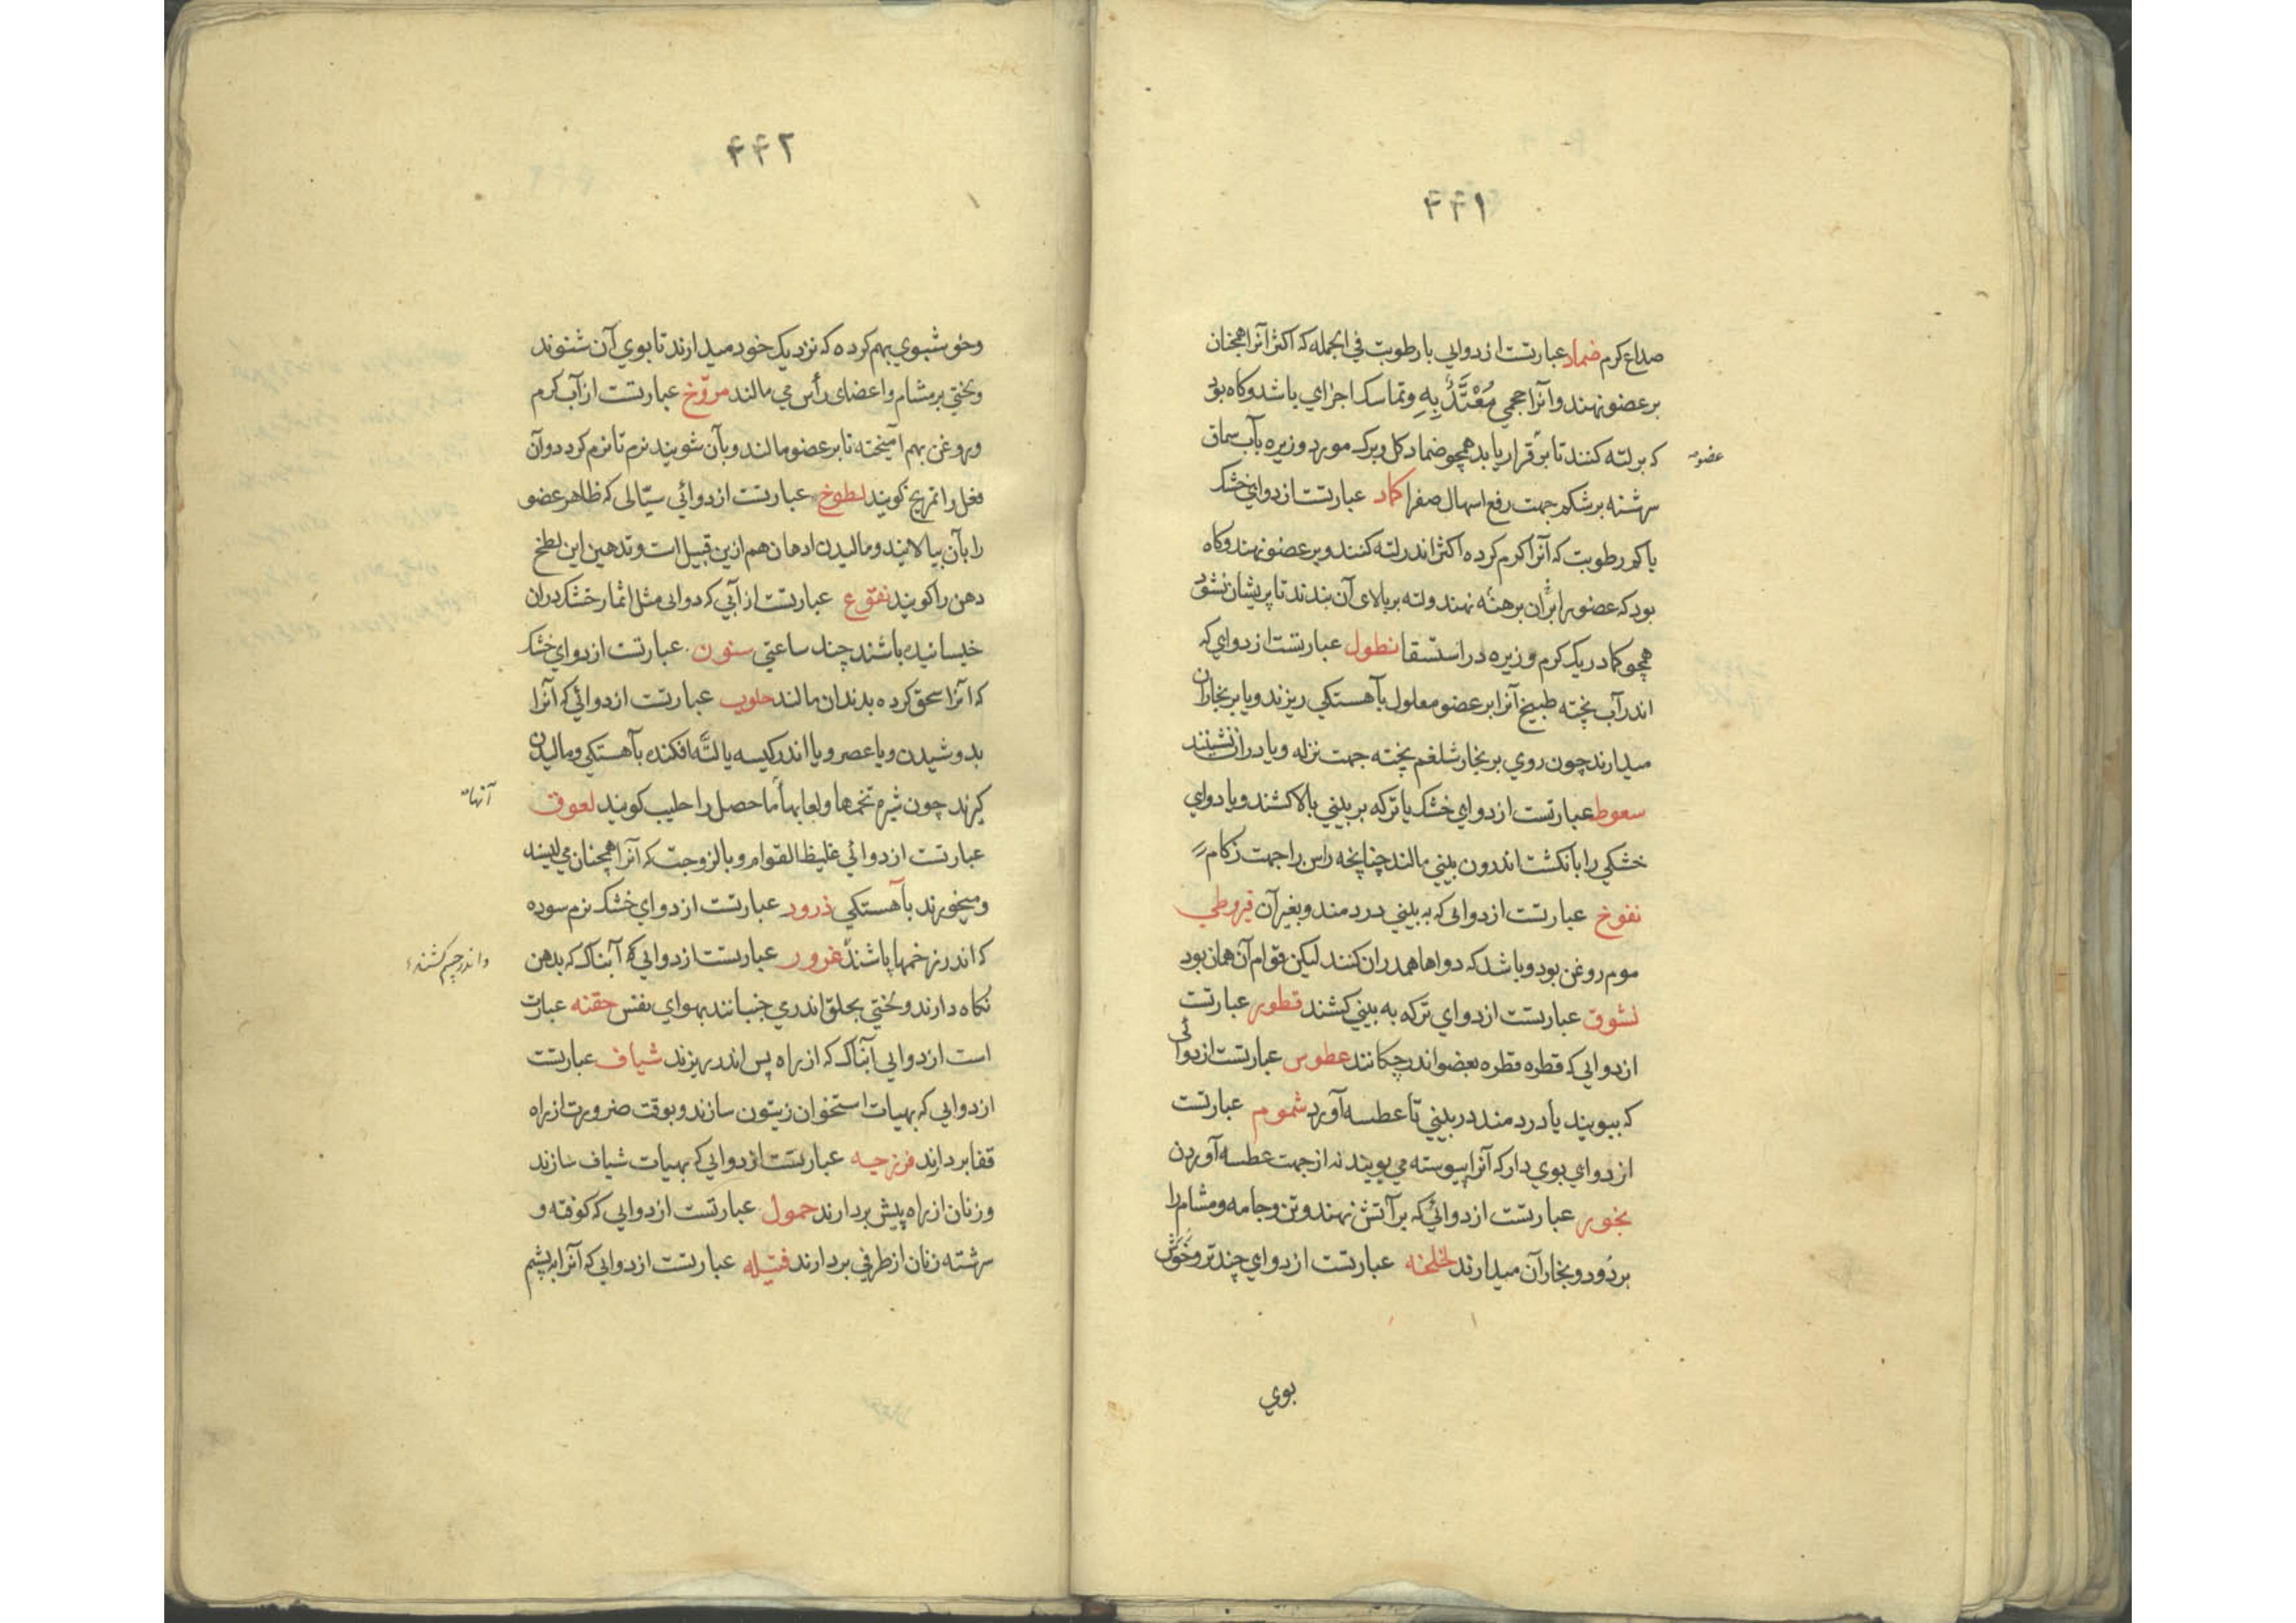 ۴۴۱
صداع کرم ضماد عبارتست از دوایی با رطوبت فی الجمله که اکثر آنرا همچنان
بر عضو نهند و آنرا حجمی مُعْتَدٌّ بِهِ و تماسک اجزای باشد و کاه بود
که بر لته کنند تا بر قرار یابد همچو ضماد کل و برک مورد و زیره بآب سماق
عضو
سرشته بر شکم جهت رفع اسهال صفرا کماد عبارتست از دوایی خشک
یا کم رطوبت که آنرا کرم کرده اکثر اندر لته کنند و بر عضو نهند و کاه
بود که عضو را بر آن برهنه نهند و لته بر بالای آن بندند تا پریشان نشود
همچو کماد ریک کرم و زیره در استسقا نطول عبارتست از دوای که
اندر آب پخته طبیخ آنرا بر عضو معلول بآهستکی ریزند و یا بر بخار آن
میدارند چون روی بر بخار شلغم پخته جهت نزله و یا در ان نشینند
سعوط عبارتست از دوای خشک یا تر که بر بینی بالا کشند و یا دوای
خشکی را بانکشت اندرون بینی مالند چنانچه راس را جهت زکام
نفوخ عبارتست از دوایی که به بینی در دمند و بغیر آن قیروطی
موم روغن بود و باشد که دواها هم در ان کنند لیکن قوام آن همان بود
نشوق عبارتست از دوای تر که به بینی کشند قطور عبارتست
از دوایی که قطره قطره بعضو اندر چکانند عطوس عبارتست از دوائی
که ببویند یا در دمند در بینی تا عطسه آورد شموم عبارتست
از دوای بوی دار که آنرا پیوسته می بویند نه از جهت عطسه آوردن
بخور عبارتست از دوائی که بر آتش نهند و تن و جامه و مشام را
بر دود و بخار آن میدارند لخلخه عبارتست از دوای چند تر و خوش
بوی
۴۴۲
و خوشبوی بهم کرده که نزدیک خود میدارند تا بوی آن شنوند
و لختی بر مشام و اعضای رأس می مالند مروّخ عبارتست از آب کرم
و روغن بهم آمیخته تا بر عضو مالند و بآن شویند نرم تا نرم کردد و آن
فعل را تمریخ کویند لطوخ عبارتست از دوائی سیّالی که ظاهر عضو
را بآن بیالایند و مالیدن ادهان هم ازین قبیل است و تدهین این لطخ
دهن را کویند نقوع عبارتست از آبی که دوایی مثل اثمار خشک در ان
خیسانیده باشند چند ساعتی سنون عبارتست از دوای خشک
که آنرا سحق کرده بدندان مالند حلوب عبارتست از دوائی که آنرا
بدوشیدن و یا عصر و یا اندر کیسه یا لته افکنده بآهستکی و مالیدن
کیرند چون شیره تخمها و لعابها ما حصل را حلیب کویند لعوق
آنها
عبارتست از دوائی غلیظ القوام و با لزوجت که آنرا همچنان می لیسند
و میخورند بآهستکی ذرور عبارتست از دوای خشک نرم سوده
که اندر زخمها پاشند غرور عبارتست از دوایی آبناک که بدهن
و اندر چشم کشند
نکاه دارند و لختی بحلق اندر می جنبانند بهوای نفس حقنه عبارت
است از دوایی آبناک که از راه پس اندر ریزند شیاف عبارتست
از دوایی که بهیات استخوان زیتون سازند و بوقت ضرورت از راه
قفا بردارند فرزجه عبارتست از دوایی که بهیات شیاف سازند
و زنان از راه پیش بردارند حمول عبارتست از دوایی که کوفته و
سرشته زنان از طرفی بردارند فتیله عبارتست از دوایی که آنرا به پشم